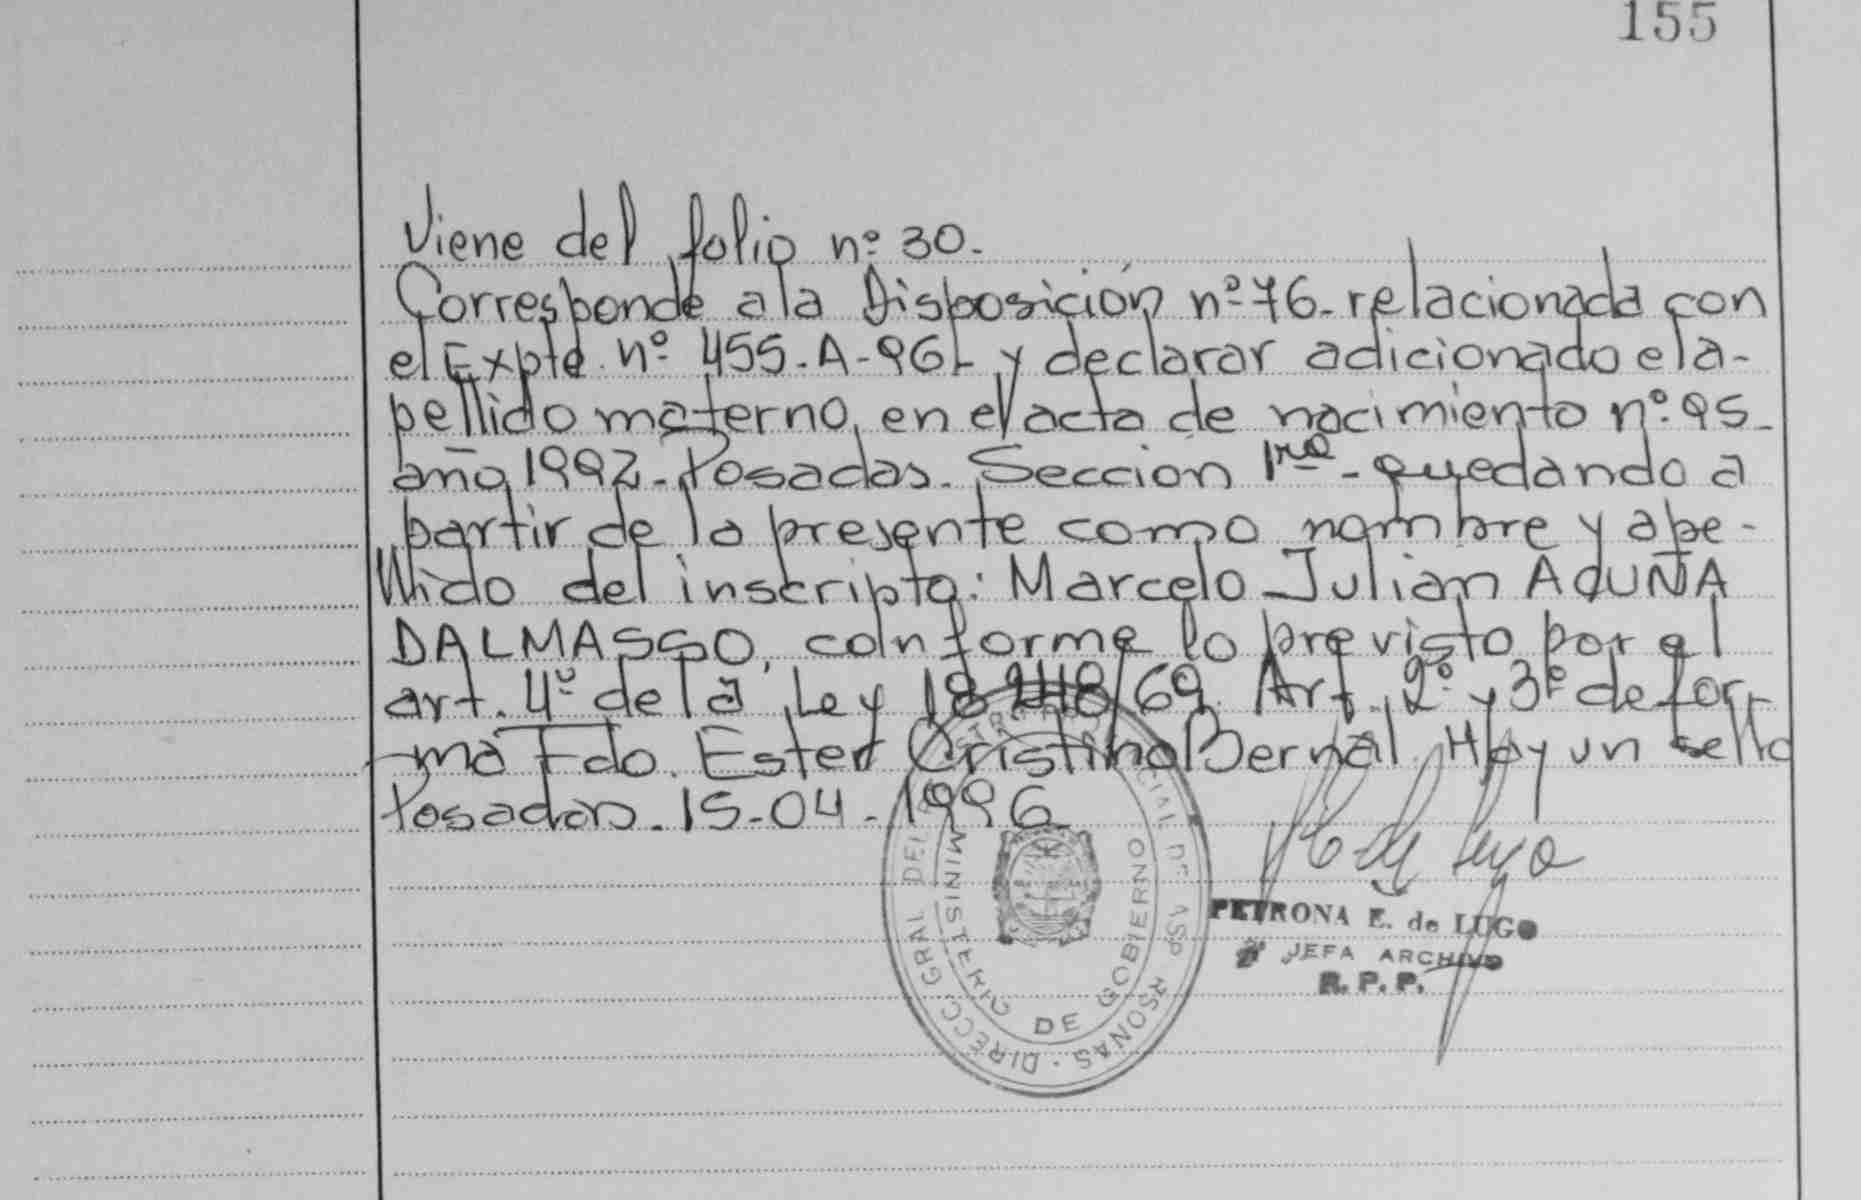 155
Viene del folio nº 30.
Corresponde a la Disposición nº 76. relacionada con
el Expte. nº 455-A-96- y declarar adicionado el a-
pellido materno, en el acta de nacimiento nº 95-
año 1992. Posadas. Sección 1ra - quedando a
partir de la presente como nombre y ape-
llido del inscripto: Marcelo Julian ACUÑA
DALMASSO, conforme lo previsto por el
art. 4º de la Ley 18248/69. Art. 2º y 3º de for-
ma Fdo. Ester Cristina Bernal. Hay un sello
Posadas. 15-04-1996
DIRECC. GRAL DEL
PERSONAS
MINISTERIO DE GOBIERNO
PETRONA E. de LUGO
JEFA ARCHIVO
R. P. P.